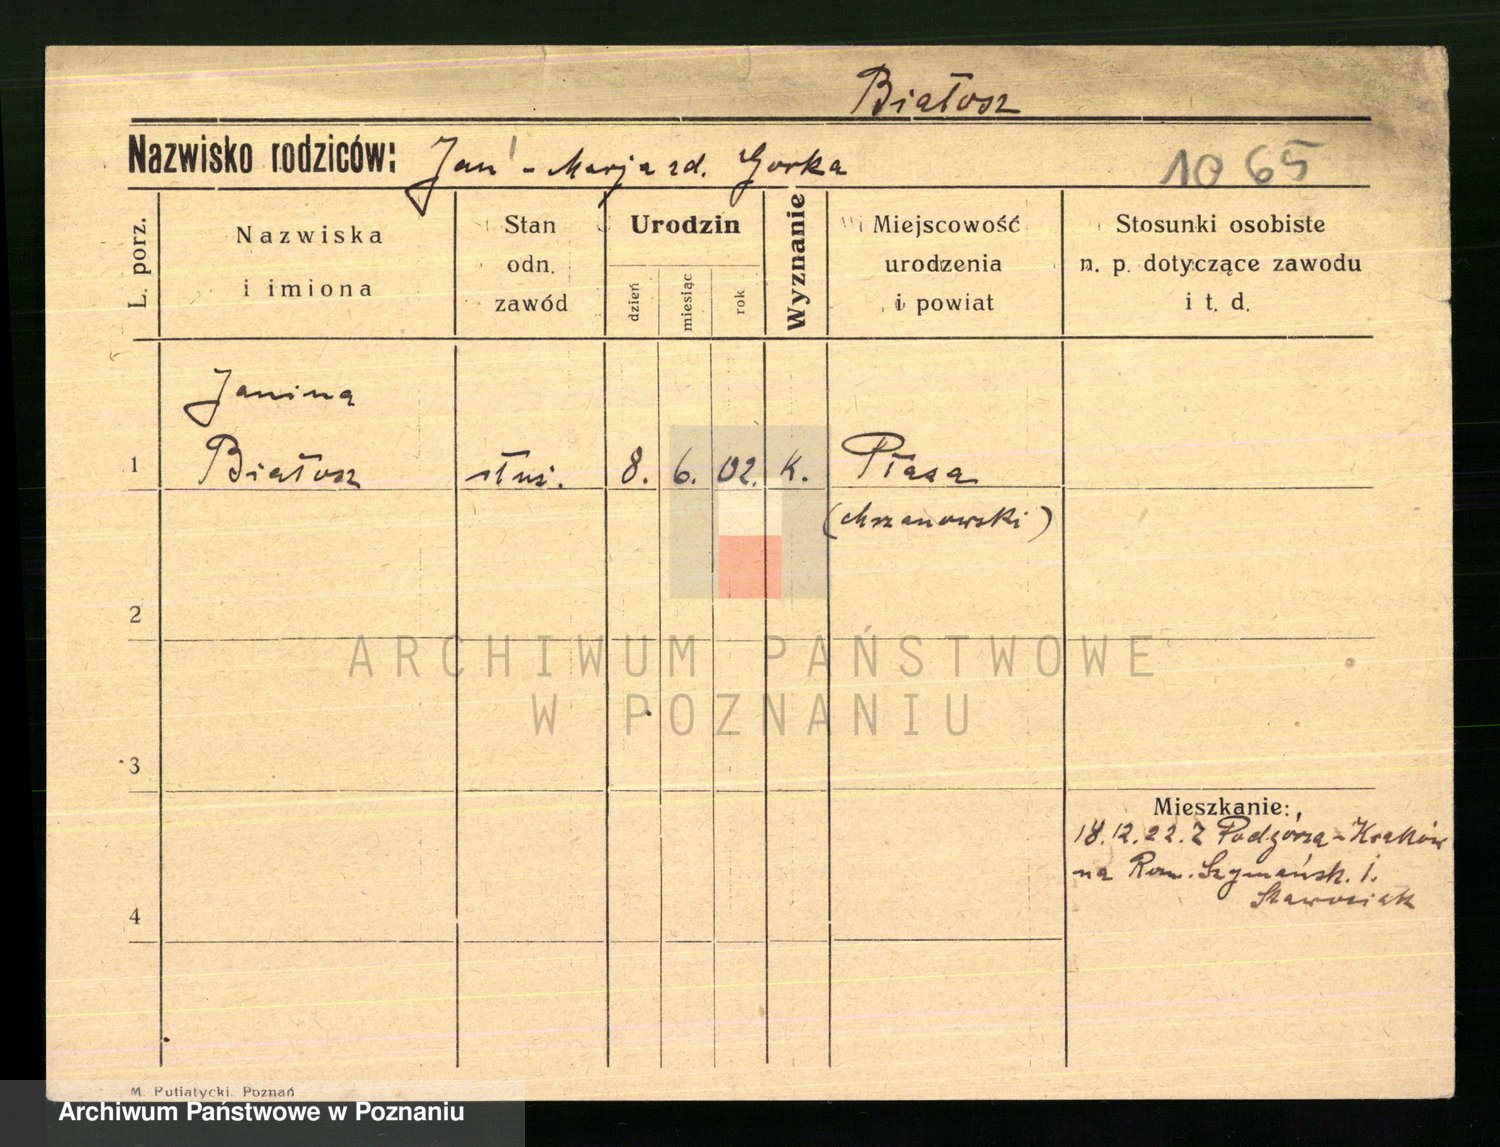 Białosz
Nazwisko rodziców: Jan - Marja zd. Gorka
1065
L. porz.
Nazwiska
i imiona
Stan
odn.
zawód
Urodzin
dzień
miesiąc
rok
Wyznanie
Miejscowość
urodzenia
i powiat
Stosunki osobiste
n. p. dotyczące zawodu
i t. d.
Janina
1 Białosz służ. 8. 6. 02. K. Płasa
(chrzanowski)
2
ARCHIWUM PAŃSTWOWE
W POZNANIU
3
Mieszkanie:
18.12.22. Z Podgorza-Kraków
na Rom. Szymańsk. 1.
4
M. Putiatycki. Poznań
Archiwum Państwowe w Poznaniu